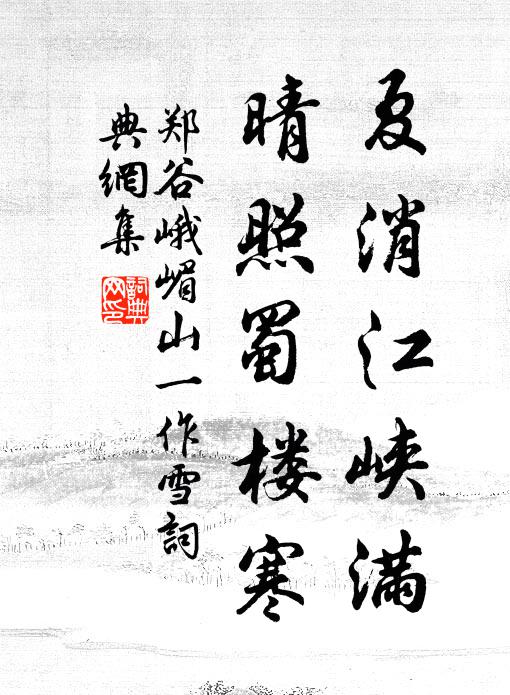 夏消江峡满
晴照蜀楼寒
郑谷峨嵋山一作雪詞
典網集
詞典網印